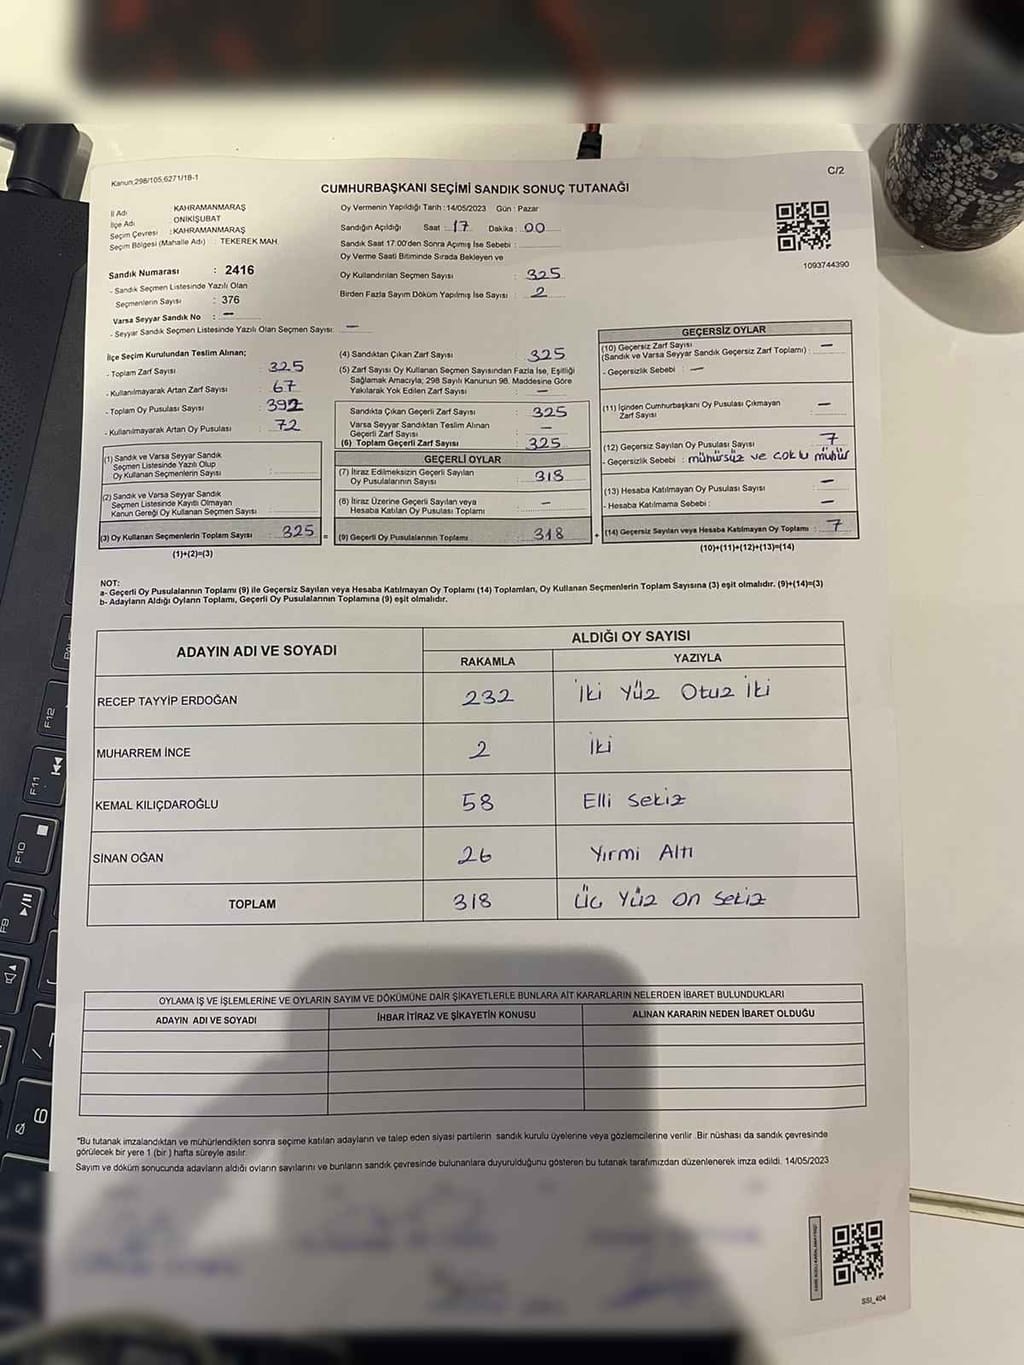 Kanun;298/105,6271/18-1
C/2
CUMHURBAŞKANI SEÇİMİ SANDIK SONUÇ TUTANAĞI
İl Adı KAHRAMANMARAŞ
İlçe Adı ONİKİŞUBAT
Seçim Çevresi : KAHRAMANMARAŞ
Seçim Bölgesi (Mahalle Adı) : TEKEREK MAH.
Sandık Numarası : 2416
- Sandık Seçmen Listesinde Yazılı Olan
Seçmenlerin Sayısı : 376
Varsa Seyyar Sandık No : —
- Seyyar Sandık Seçmen Listesinde Yazılı Olan Seçmen Sayısı: —
Oy Vermenin Yapıldığı Tarih : 14/05/2023 Gün : Pazar
Sandığın Açıldığı Saat : 17 Dakika : 00
Sandık Saat 17.00'den Sonra Açımış İse Sebebi :
Oy Verme Saati Bitiminde Sırada Bekleyen ve
Oy Kullandırılan Seçmen Sayısı : 325
Birden Fazla Sayım Döküm Yapılmış İse Sayısı : 2
1093744390
İlçe Seçim Kurulundan Teslim Alınan;
- Toplam Zarf Sayısı : 325
- Kullanılmayarak Artan Zarf Sayısı : 67
- Toplam Oy Pusulası Sayısı : 392
- Kullanılmayarak Artan Oy Pusulası : 72
(1) Sandık ve Varsa Seyyar Sandık
Seçmen Listesinde Yazılı Olup
Oy Kullanan Seçmenlerin Sayısı :
(2) Sandık ve Varsa Seyyar Sandık
Seçmen Listesinde Kayıtlı Olmayan
Kanun Gereği Oy Kullanan Seçmen Sayısı :
(3) Oy Kullanan Seçmenlerin Toplam Sayısı : 325 =
(1)+(2)=(3)
(4) Sandıktan Çıkan Zarf Sayısı : 325
(5) Zarf Sayısı Oy Kullanan Seçmen Sayısından Fazla İse, Eşitliği
Sağlamak Amacıyla, 298 Sayılı Kanunun 98. Maddesine Göre
Yakılarak Yok Edilen Zarf Sayısı : —
Sandıkta Çıkan Geçerli Zarf Sayısı : 325
Varsa Seyyar Sandıktan Teslim Alınan
Geçerli Zarf Sayısı : —
(6) Toplam Geçerli Zarf Sayısı : 325
GEÇERLİ OYLAR
(7) İtiraz Edilmeksizin Geçerli Sayılan
Oy Pusulalarının Sayısı : 318
(8) İtiraz Üzerine Geçerli Sayılan veya
Hesaba Katılan Oy Pusulası Toplamı : —
(9) Geçerli Oy Pusulalarının Toplamı : 318 +
GEÇERSİZ OYLAR
(10) Geçersiz Zarf Sayısı
(Sandık ve Varsa Seyyar Sandık Geçersiz Zarf Toplamı) : —
- Geçersizlik Sebebi : —
(11) İçinden Cumhurbaşkanı Oy Pusulası Çıkmayan
Zarf Sayısı : —
(12) Geçersiz Sayılan Oy Pusulası Sayısı : 7
- Geçersizlik Sebebi : mühürsüz ve çoklu mühür
(13) Hesaba Katılmayan Oy Pusulası Sayısı : —
- Hesaba Katılmama Sebebi : —
(14) Geçersiz Sayılan veya Hesaba Katılmayan Oy Toplamı : 7
(10)+(11)+(12)+(13)=(14)
NOT:
a- Geçerli Oy Pusulalarının Toplamı (9) ile Geçersiz Sayılan veya Hesaba Katılmayan Oy Toplamı (14) Toplamları, Oy Kullanan Seçmenlerin Toplam Sayısına (3) eşit olmalıdır. (9)+(14)=(3)
b- Adayların Aldığı Oyların Toplamı, Geçerli Oy Pusulalarının Toplamına (9) eşit olmalıdır.
ADAYIN ADI VE SOYADI
ALDIĞI OY SAYISI
RAKAMLA YAZIYLA
RECEP TAYYİP ERDOĞAN 232 İki Yüz Otuz İki
MUHARREM İNCE 2 İki
KEMAL KILIÇDAROĞLU 58 Elli Sekiz
SİNAN OĞAN 26 Yırmi Altı
TOPLAM 318 Üç Yüz On Sekiz
OYLAMA İŞ VE İŞLEMLERİNE VE OYLARIN SAYIM VE DÖKÜMÜNE DAİR ŞİKAYETLERLE BUNLARA AİT KARARLARIN NELERDEN İBARET BULUNDUKLARI
ADAYIN ADI VE SOYADI İHBAR İTİRAZ VE ŞİKAYETİN KONUSU ALINAN KARARIN NEDEN İBARET OLDUĞU
*Bu tutanak imzalandıktan ve mühürlendikten sonra seçime katılan adayların ve talep eden siyasi partilerin sandık kurulu üyelerine veya gözlemcilerine verilir. Bir nüshası da sandık çevresinde
görülecek bir yere 1 (bir) hafta süreyle asılır.
Sayım ve döküm sonucunda adayların aldığı oyların sayılarını ve bunların sandık çevresinde bulunanlara duyurulduğunu gösteren bu tutanak tarafımızdan düzenlenerek imza edildi. 14/05/2023
SSI_404
F12
F11
F10
F9
6